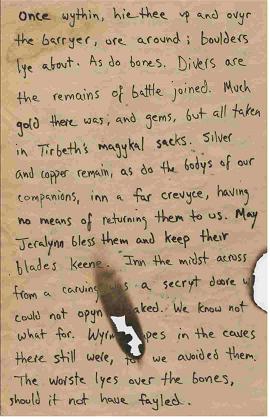 Once wythin, hie thee up and ovyr
the barryer, ore around; boulders
lye about. As do bones. Divers are
the remains of battle joined. Much
gold there was, and gems, but all taken
in Tirbeth's magykal sacks. Silver
and copper remain, as do the bodys of our
companions, inn a far crevyce, having
no means of returning them to us. May
Jeralynn bless them and keep their
blades keene. Inn the midst across
from a carving was a secryt doore w
could not opyn aked. We know not
what for. Wyrm pes in the caves
there still were, we avoided them.
The worste lyes over the bones,
should it not have fayled.